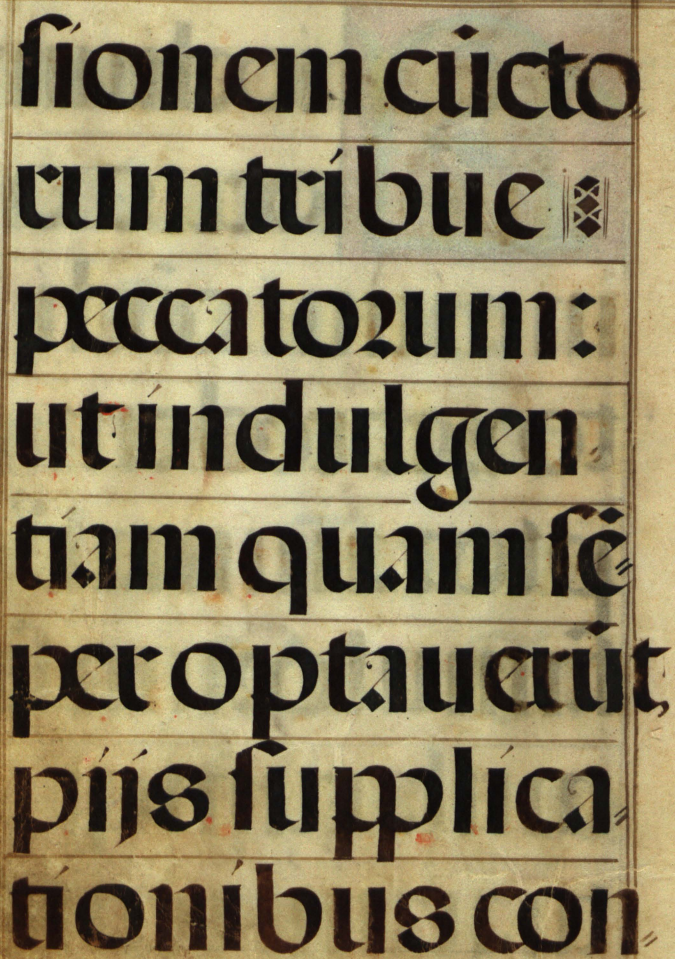 ſionem cu̇cto=
rum tribue
peccatoꝛum:
ut indulgen-
tiam quam ſē=
per optaueru̇t,
pijs ſupplica=
tionibus con=